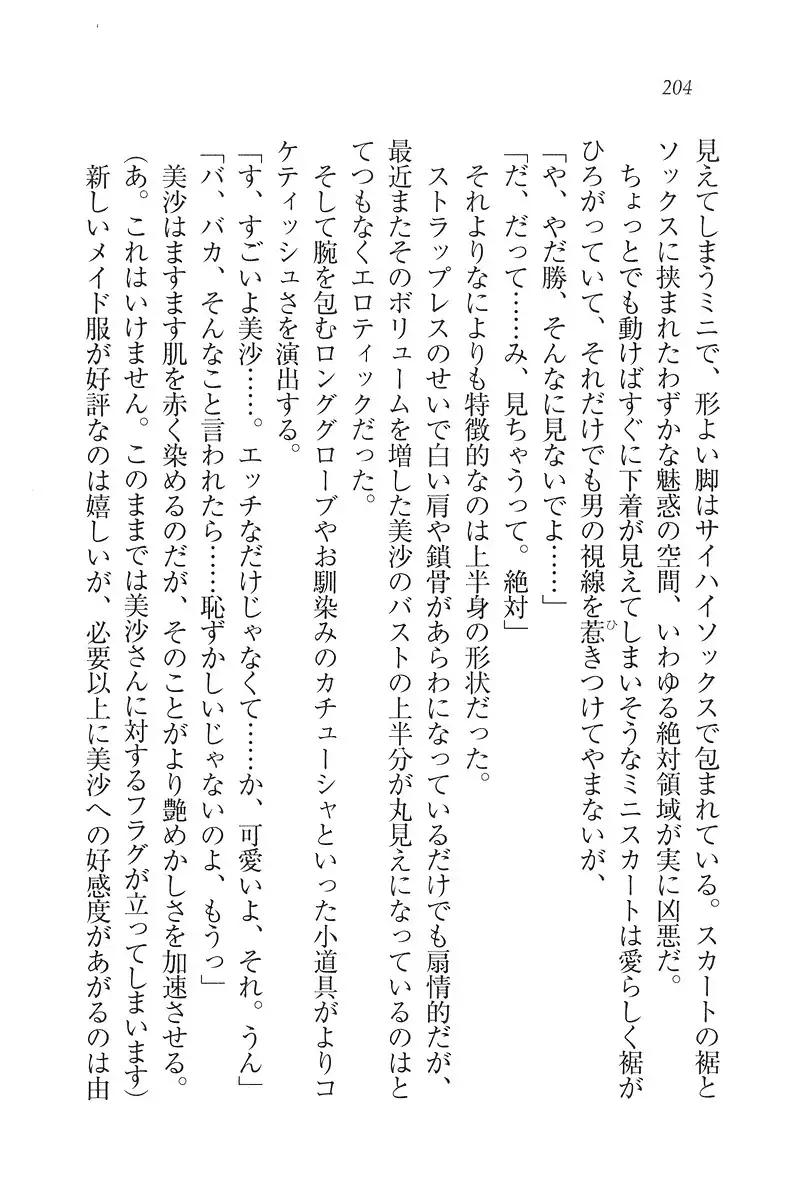 204
見えてしまうミニで、形よい脚はサイハイソックスで包まれている。スカートの裾と
ソックスに挟まれたわずかな魅惑の空間、いわゆる絶対領域が実に凶悪だ。
ちょっとでも動けばすぐに下着が見えてしまいそうなミニスカートは愛らしく裾が
ひろがっていて、それだけでも男の視線を惹きつけてやまないが、
「や、やだ勝、そんなに見ないでよ……」
「だ、だって……み、見ちゃうって。絶対」
それよりなによりも特徴的なのは上半身の形状だった。
ストラップレスのせいで白い肩や鎖骨があらわになっているだけでも扇情的だが、
最近またそのボリュームを増した美沙のバストの上半分が丸見えになっているのはと
てつもなくエロティックだった。
そして腕を包むロンググローブやお馴染みのカチューシャといった小道具がよりコ
ケティッシュさを演出する。
「す、すごいよ美沙……。エッチなだけじゃなくて……か、可愛いよ、それ。うん」
「バ、バカ、そんなこと言われたら……恥ずかしいじゃないのよ、もうっ」
美沙はますます肌を赤く染めるのだが、そのことがより艶めかしさを加速させる。
(あ。これはいけません。このままでは美沙さんに対するフラグが立ってしまいます)
新しいメイド服が好評なのは嬉しいが、必要以上に美沙への好感度があがるのは由